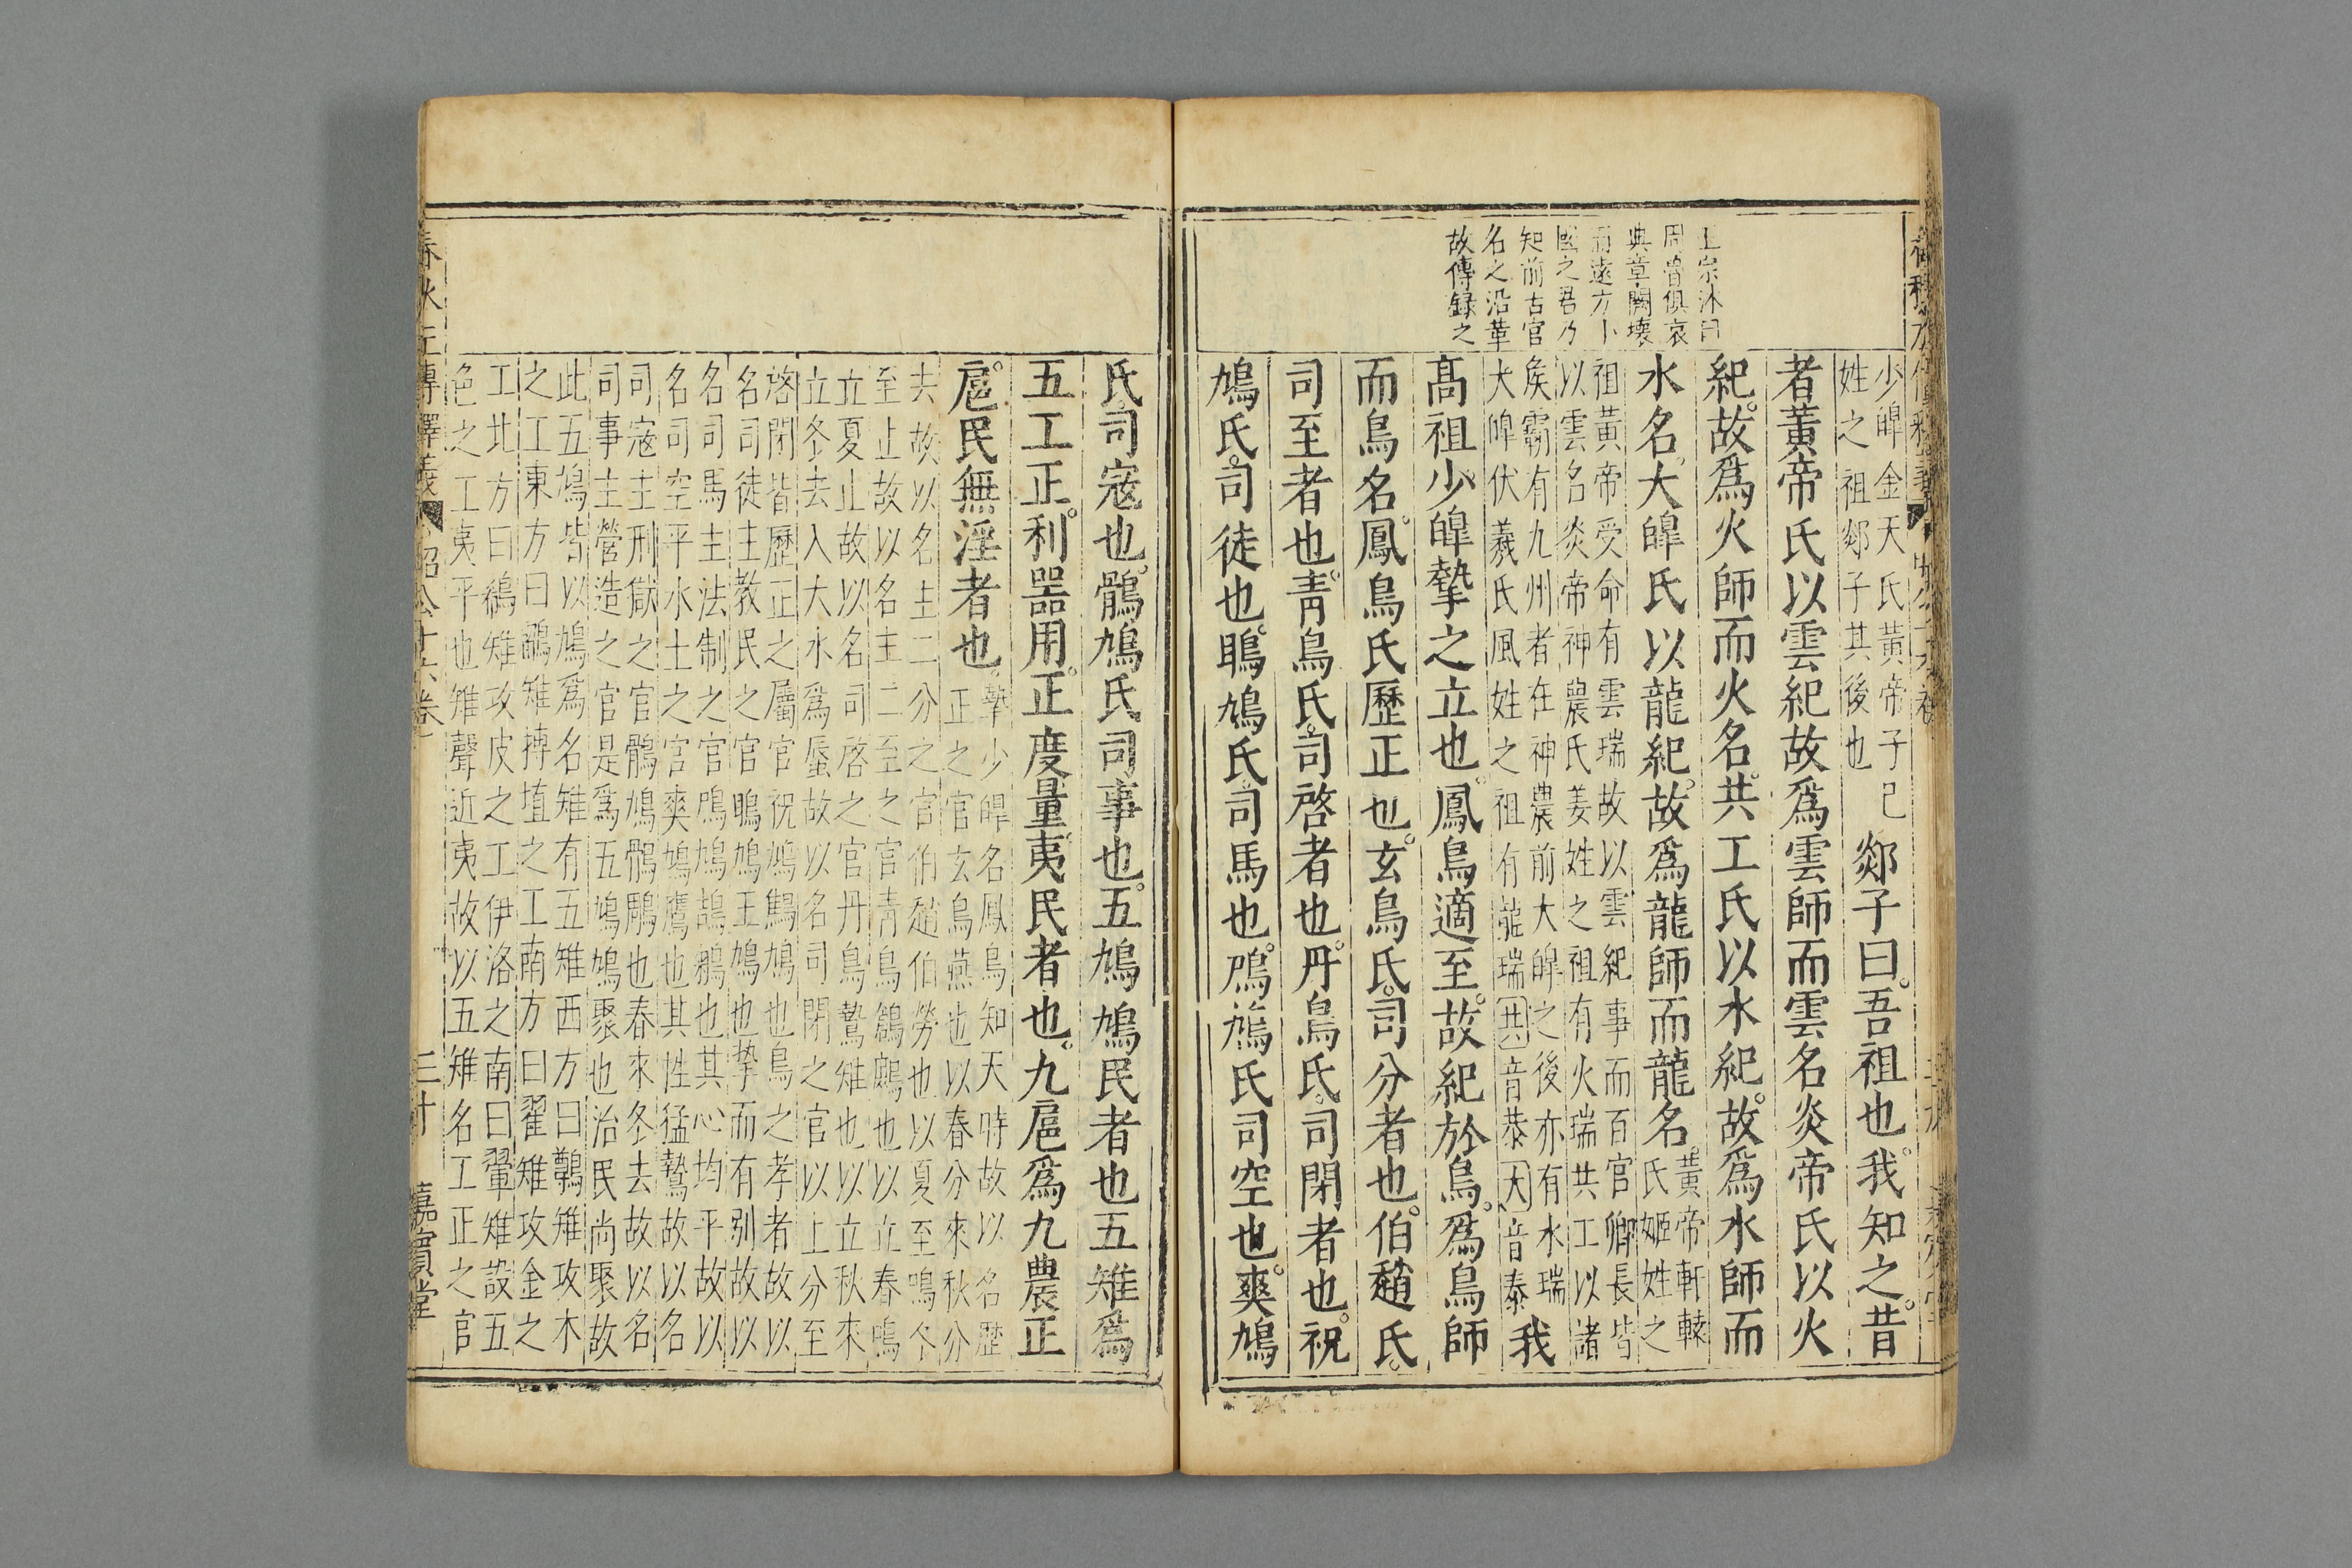 王宗沐曰
周曽俱衰
典章闕壞
而遠方小
國之君乃
知前古官
名之沿革
故傳録之
少皥金天氏黃帝子己
姓之祖郯子其後也
郯子曰吾祖也我知之昔
者黃帝氏以雲紀故爲雲師而雲名炎帝氏以火
紀故爲火師而火名共工氏以水紀故爲水師而
水名大皥氏以龍紀故爲龍師而龍名
黃帝軒轅
氏姬姓之
祖黃帝受命有雲瑞故以雲紀事而百官卿長皆
以雲名炎帝神農氏姜姓之祖有火瑞共工以諸
矦霸有九州者在神農前大皥之後亦有水瑞
大皥伏羲氏風姓之祖有龍瑞共音恭大音泰
我
高祖少皥摯之立也鳳鳥適至故紀於鳥爲鳥師
而鳥名鳳鳥氏歷正也玄鳥氏司分者也伯趙氏
司至者也靑鳥氏司啓者也丹鳥氏司閉者也祝
鳩氏司徒也鴡鳩氏司馬也鳲鳩氏司空也爽鳩
氏司寇也鶻鳩氏司事也五鳩鳩民者也五雉爲
五工正利噐用正度量夷民者也九扈爲九農正
扈民無淫者也
摯少皥名鳳鳥知天時故以名歷
正之官玄鳥燕也以春分來秋分
去故以名主二分之官伯趙伯勞也以夏至鳴冬
至止故以名主二至之官靑鳥鶬鷃也以立春鳴
立夏止故以名司啓之官丹鳥鷩雉也以立秋來
立冬去入大水爲蜃故以名司閉之官以上分至
啓閉皆歷正之屬官祝鳩鷦鳩也鳥之孝者故以
名司徒主教民之官鴡鳩王鳩也摯而有別故以
名司馬主法制之官鳲鳩鵠鵴也其心均平故以
名司空平水土之官爽鳩鷹也其性猛鷙故以名
司寇主刑獄之官鶻鳩鶻鵰也春來冬去故以名
司事主營造之官是爲五鳩鳩聚也治民尚聚故
此五鳩皆以鳩爲名雉有五雉西方曰鷷雉攻木
之工東方曰鶅雉摶埴之工南方曰翟雉攻金之
工北方曰鵗雉攻皮之工伊洛之南曰翬雉設五
色之工夷平也雉聲近夷故以五雉名工正之官
春秋左傳釋義 昭公十六卷 三十 嘉賓堂